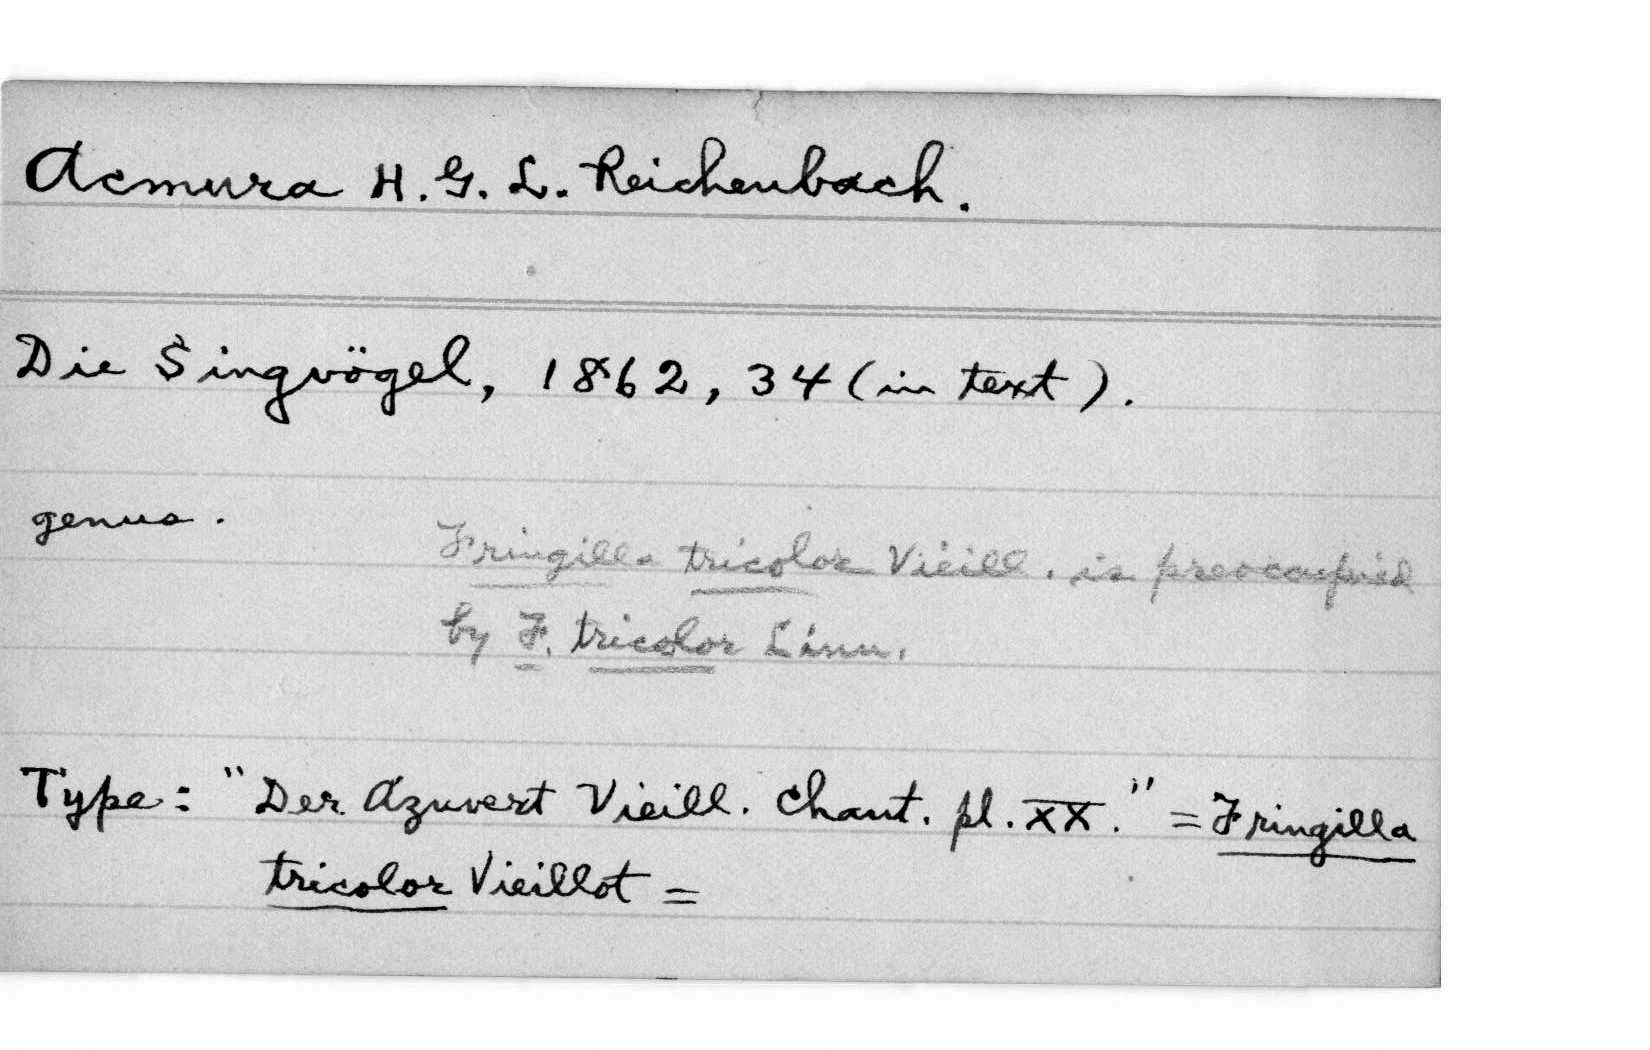 Acmura H. G. L. Reichenbach.
Die Singvögel, 1862, 34 (in text).
genus.
Fringilla tricolor Vieill. is preoccupied
by F. tricolor Linn.
Type: "Der Azuvert Vieill. Chant. pl. XX." = Fringilla
tricolor Vieillot =